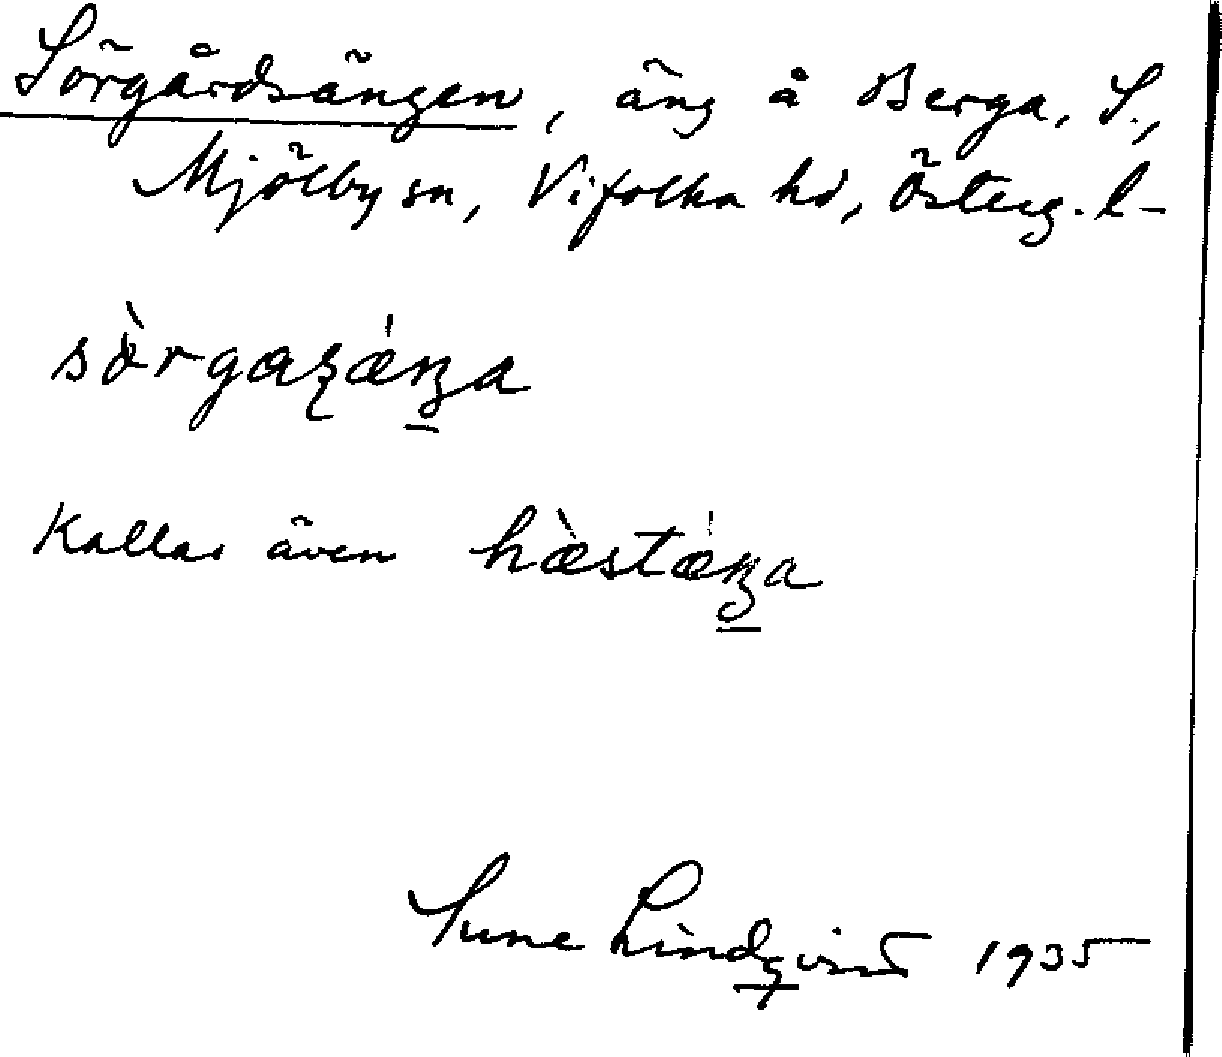 Sörgårdsängen, äng å Berga, S.,
Mjölby sn, Vifolka hd, Österg. l-
sòrgaʐǽŋa
Kallas även hæ̀stǽŋa
Sune Lindqvist 1935